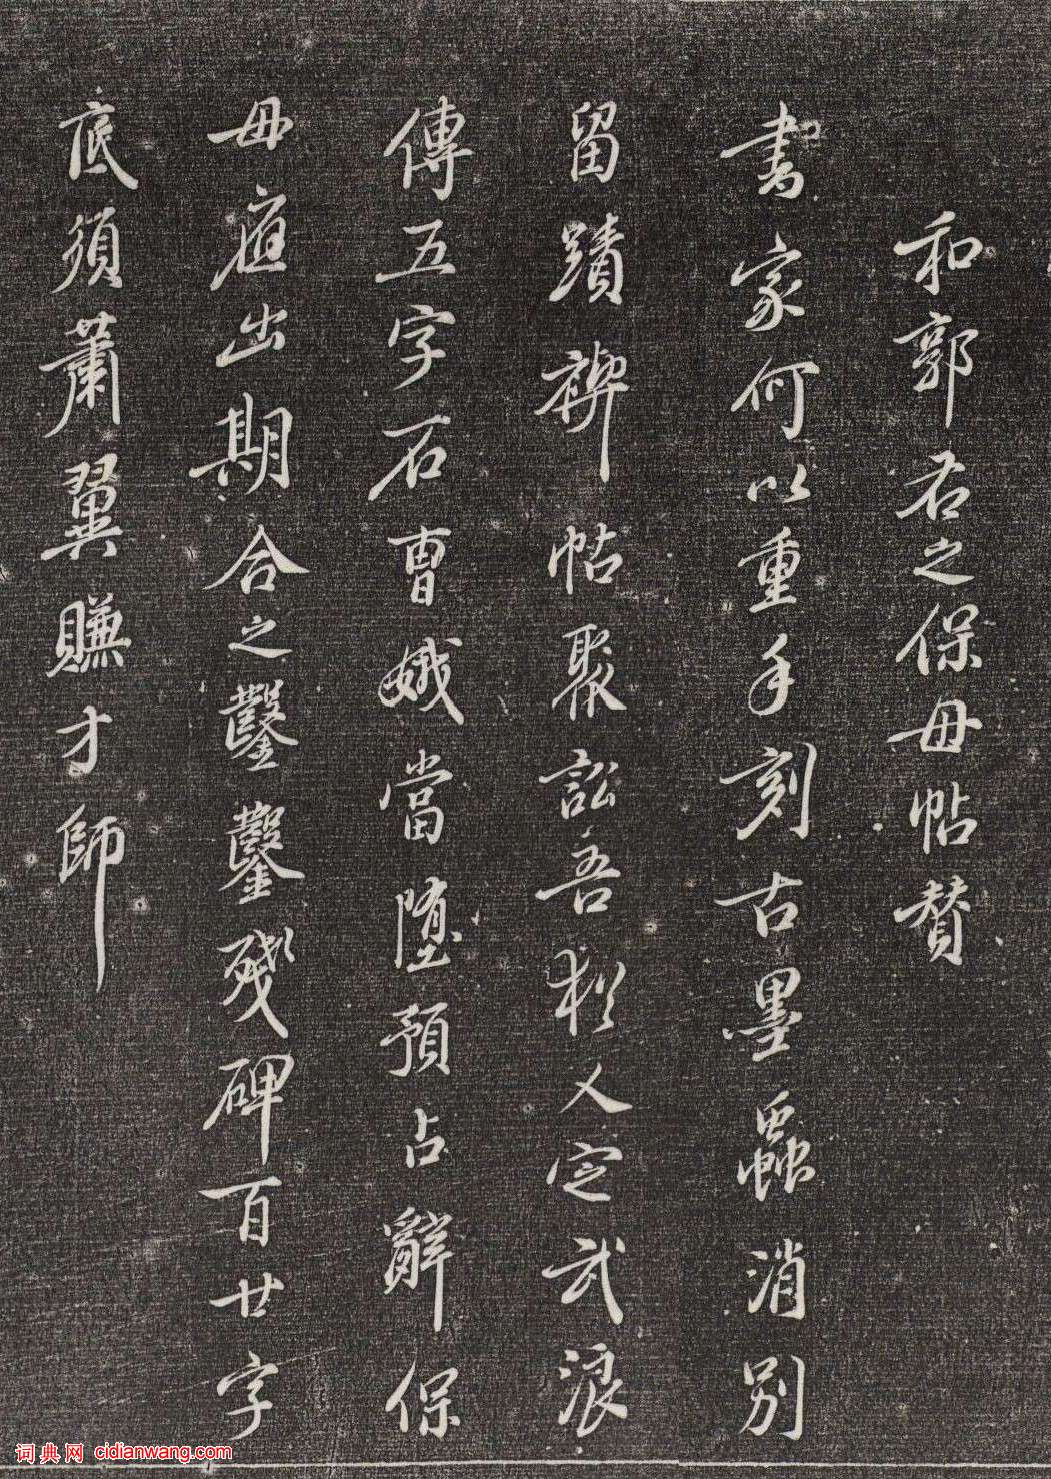 和郭右之保母帖贊
書家何以重手刻古墨蟲消別
留蹟褉帖聚訟吾猶人定武浪
傳五字石曹娥當堕預占辭保
母痯出期合之鑿鑿殘碑百廿字
底須蕭翼賺才師
词典网 cidianwang.com